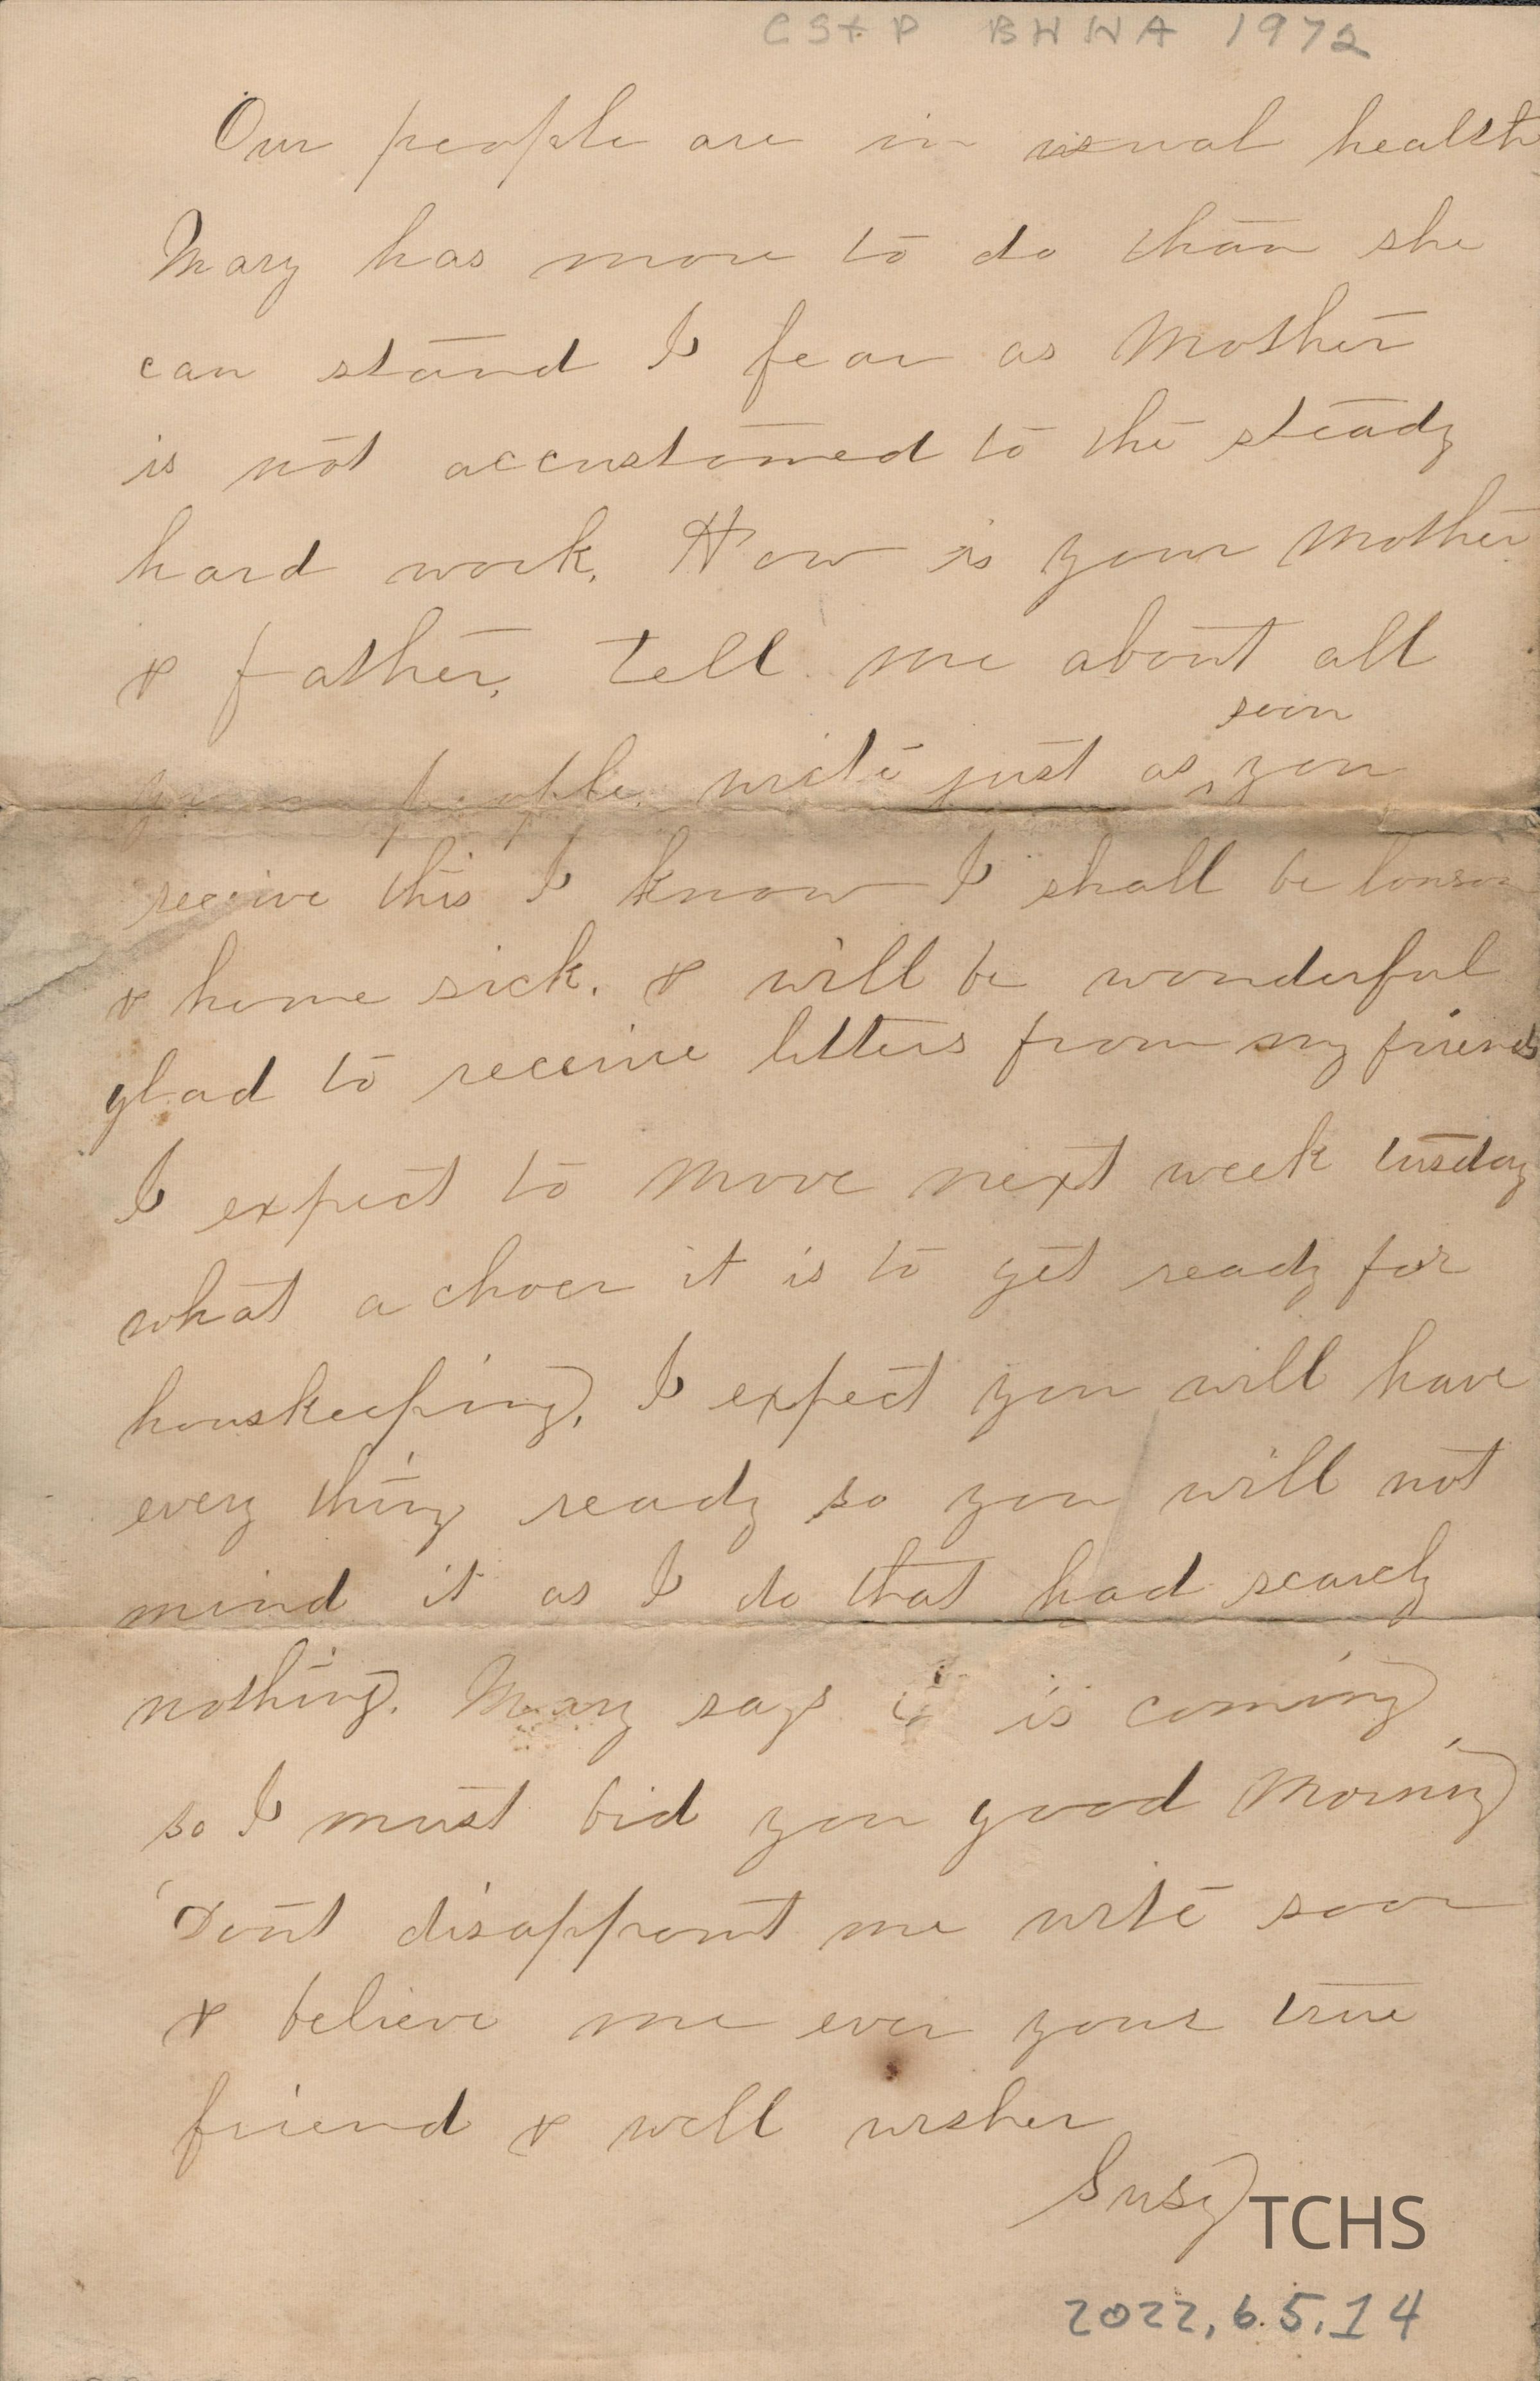 CS+P BHWA 1972
Our people are in usual health
Mary has more to do than she
can stand I fear as Mother
is not accustomed to the steady
hard work. How is your Mother
& father, tell me about all
soon
your people. write just as ^ you
receive this I know I shall be
& home sick. & will be wonderful
glad to receive letters from my friends
I expect to Move next week tusday
what a choer it is to get ready for
houskeeping, I expect you will have
every thing ready so you will not
mind it as I do that had scarcly
nothing. Mary says it is coming
so I must bid you good Morning
Dont disappront me write soon
& believe me ever your true
friend & well wisher
Susy
TCHS
2022.6.5.14